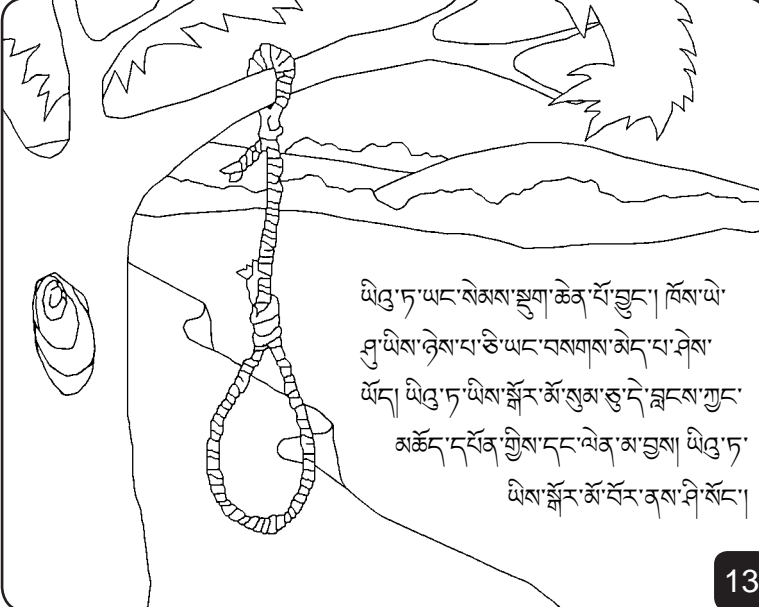 ཡིའུ་ཏ་ཡང་སེམས་སྡུག་ཆེན་པོ་བྱུང་། ཁོས་ཡེ་
ཤུ་ཡིས་ཉེས་པ་ཅི་ཡང་བསགས་མེད་པ་ཤེས་
ཡོད། ཡིའུ་ཏ་ཡིས་སྒོར་མོ་སུམ་ཅུ་དེ་བླངས་ཀྱང་
མཆོད་དཔོན་གྱིས་དང་ལེན་མ་བྱས། ཡིའུ་ཏ་
ཡིས་སྒོར་མོ་བོར་ནས་ཤི་སོང་།
13